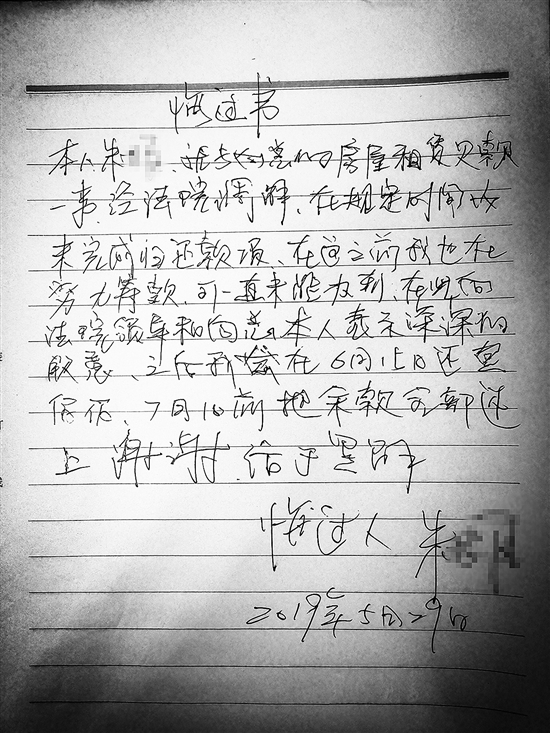 悔过书
本人朱 房屋租赁欠款
一事、经法院调解、在规定时间
未完成归还款项、在这之前我也在
努力筹款、可一直未能 到、在此向
法院领导和 本人表示深深的
歉意、 在6月15日还
7月10前把余款全部还
上 谢谢、给予 解
悔过人 朱
2019年5月29日